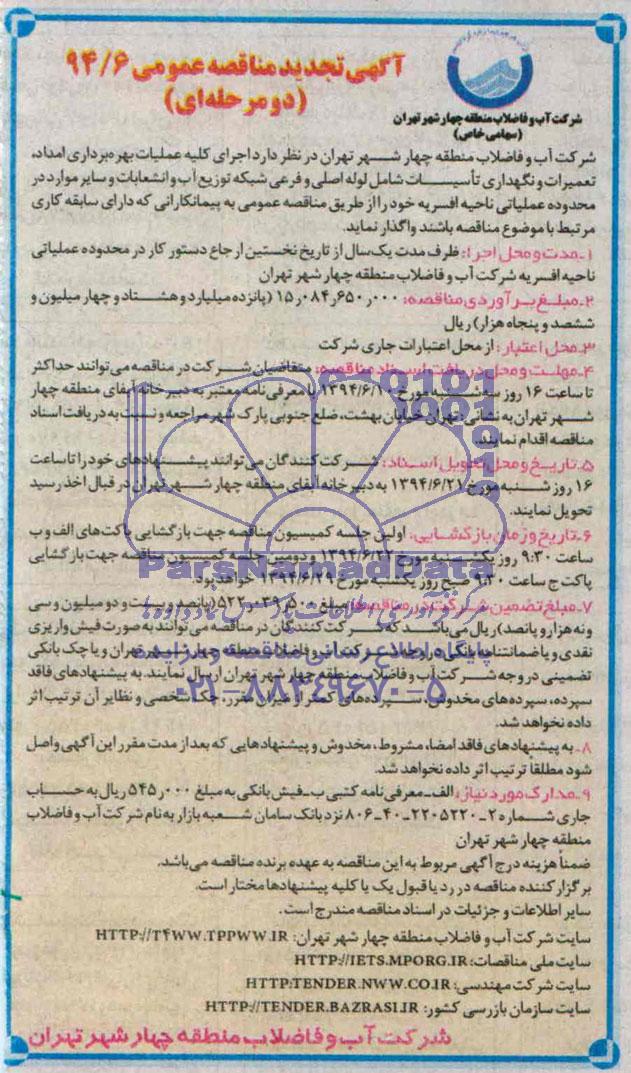 آگهی تجدید مناقصه عمومی ۹۴/۶
(دو مرحله‌ای)
شرکت آب و فاضلاب منطقه چهار شهر تهران
(سهامی خاص)
شرکت آب و فاضلاب منطقه چهار شهر تهران در نظر دارد اجرای کلیه عملیات بهره‌برداری امداد،
تعمیرات و نگهداری تأسیسات شامل لوله اصلی و فرعی شبکه توزیع آب و انشعابات و سایر موارد در
محدوده عملیاتی ناحیه افسریه خود را از طریق مناقصه عمومی به پیمانکارانی که دارای سابقه کاری
مرتبط با موضوع مناقصه باشند واگذار نماید.
۱ـ مدت و محل اجرا: ظرف مدت یک‌سال از تاریخ نخستین ارجاع دستور کار در محدوده عملیاتی
ناحیه افسریه شرکت آب و فاضلاب منطقه چهار شهر تهران
۲ـ مبلغ برآوردی مناقصه: ۱۵٫۰۸۴٫۶۵۰٫۰۰۰ (پانزده میلیارد و هشتاد و چهار میلیون و
ششصد و پنجاه هزار) ریال
۳ـ محل اعتبار: از محل اعتبارات جاری شرکت
۴ـ مهلت و محل دریافت اسناد مناقصه: متقاضیان شرکت در مناقصه می‌توانند حداکثر
تا ساعت ۱۶ روز سه‌شنبه مورخ ۱۳۹۴/۶/۱۰ با معرفی‌نامه معتبر به دبیرخانه آبفای منطقه چهار
شهر تهران به نشانی: تهران خیابان بهشت، ضلع جنوبی پارک شهر مراجعه و نسبت به دریافت اسناد
مناقصه اقدام نمایند.
۵ـ تاریخ و محل تحویل اسناد: شرکت کنندگان می‌توانند پیشنهادهای خود را تا ساعت
۱۶ روز شنبه مورخ ۱۳۹۴/۶/۲۱ به دبیرخانه آبفای منطقه چهار شهر تهران در قبال اخذ رسید
تحویل نمایند.
۶ـ تاریخ و زمان بازگشایی: اولین جلسه کمیسیون مناقصه جهت بازگشایی پاکت‌های الف و ب
ساعت ۹:۳۰ روز یکشنبه مورخ ۱۳۹۴/۶/۲۲ و دومین جلسه کمیسیون مناقصه جهت بازگشایی
پاکت ج ساعت ۹:۳۰ صبح روز یکشنبه مورخ ۱۳۹۴/۶/۲۹ خواهد بود.
۷ـ مبلغ تضمین شرکت در مناقصه: مبلغ ۵۲۲٫۰۳۹٫۵۰۰ (پانصد و بیست و دو میلیون و سی
و نه هزار و پانصد) ریال می‌باشد که شرکت کنندگان در مناقصه می‌توانند به صورت فیش واریزی
نقدی و یا ضمانتنامه بانکی در وجه شرکت آب و فاضلاب منطقه چهار شهر تهران و یا چک بانکی
تضمینی در وجه شرکت آب و فاضلاب منطقه چهار شهر تهران ارسال نمایند. به پیشنهادهای فاقد
سپرده، سپرده‌های مخدوش، سپرده‌های کمتر از میزان مقرر، چک شخصی و نظایر آن ترتیب اثر
داده نخواهد شد.
۸ـ به پیشنهادهای فاقد امضا، مشروط، مخدوش و پیشنهادهایی که بعد از مدت مقرر این آگهی واصل
شود مطلقا ترتیب اثر داده نخواهد شد.
۹ـ مدارک مورد نیاز: الف ـ معرفی‌نامه کتبی ب ـ فیش بانکی به مبلغ ۵۴۵٫۰۰۰ ریال به حساب
جاری شماره ۲ـ۲۲۰۵۲۲۰ـ۴۰ـ۸۰۶ نزد بانک سامان شعبه بازار به نام شرکت آب و فاضلاب
منطقه چهار شهر تهران
ضمناً هزینه درج آگهی مربوط به این مناقصه به عهده برنده مناقصه می‌باشد.
برگزار کننده مناقصه در رد یا قبول یک یا کلیه پیشنهادها مختار است.
سایر اطلاعات و جزئیات در اسناد مناقصه مندرج است.
سایت شرکت آب و فاضلاب منطقه چهار شهر تهران: HTTP://T۴WW.TPPWW.IR
سایت ملی مناقصات: HTTP://IETS.MPORG.IR
سایت شرکت مهندسی: HTTP:TENDER.NWW.CO.IR
سایت سازمان بازرسی کشور: HTTP://TENDER.BAZRASI.IR
شرکت آب و فاضلاب منطقه چهار شهر تهران
ParsNamadData
پایگاه اطلاع رسانی مناقصه و مزایده
۰۲۱-۸۸۳۴۹۶۷۰-۵